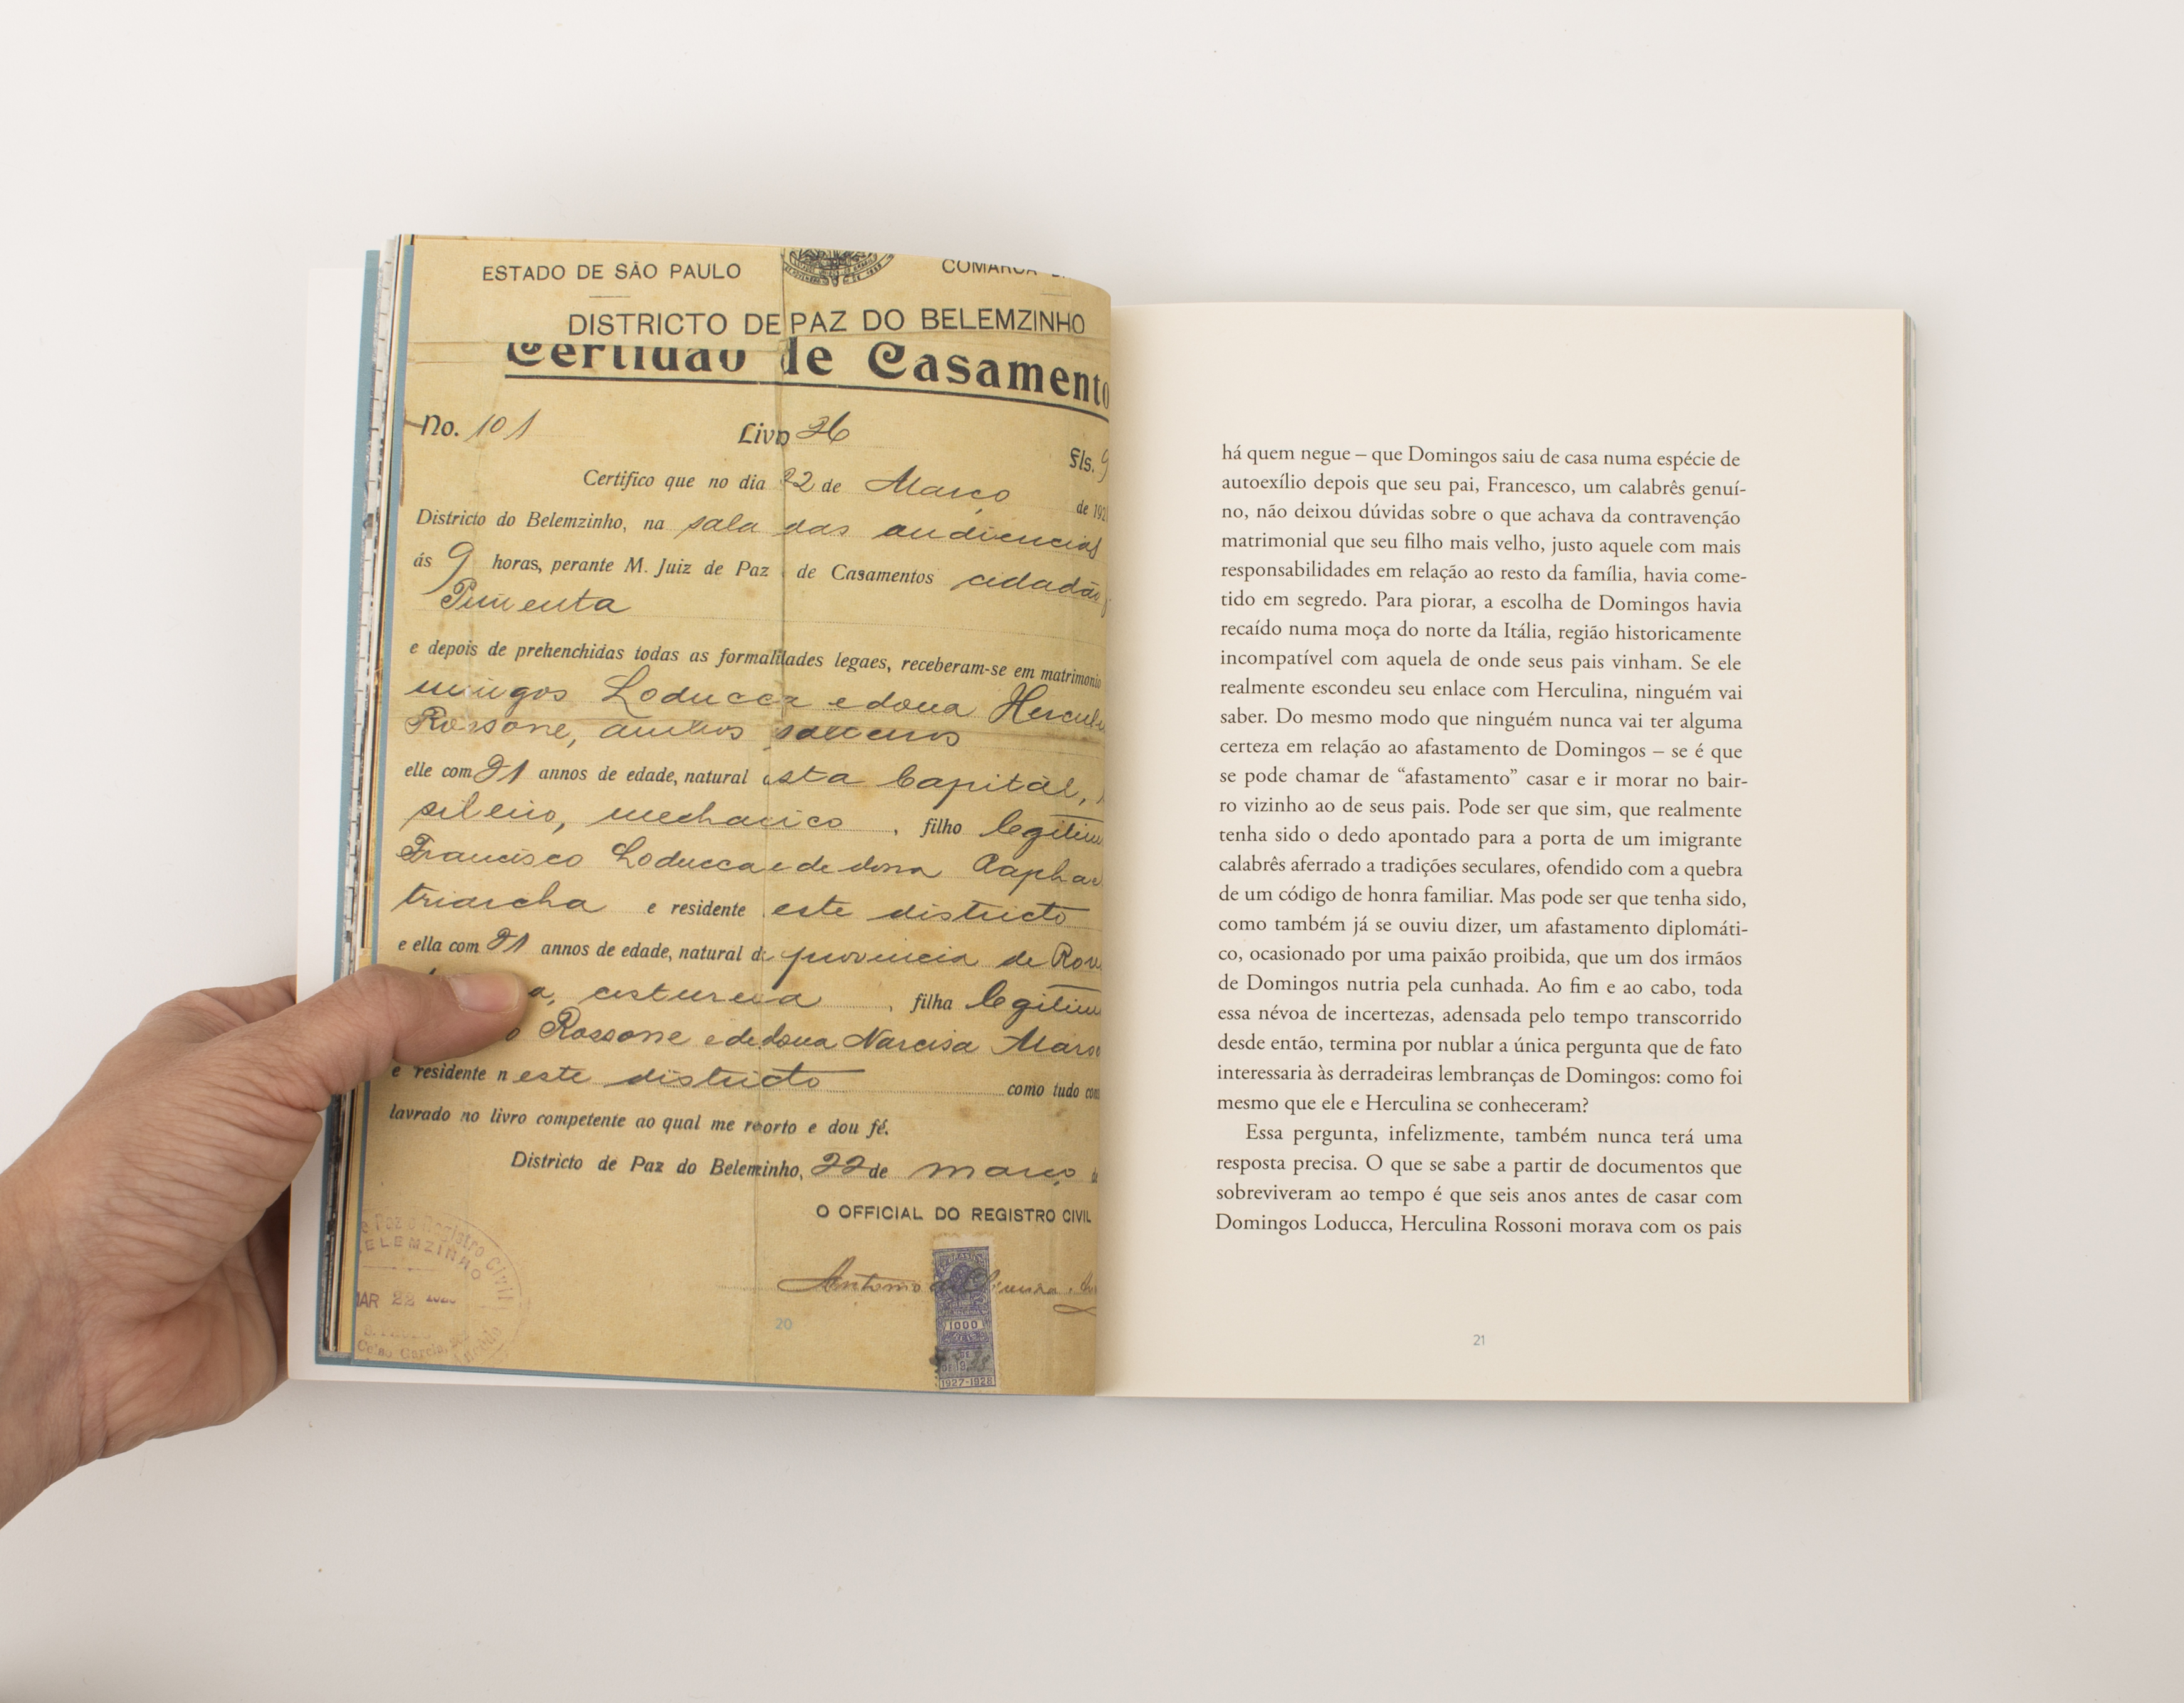 ESTADO DE SÃO PAULO
COMARCA
DISTRICTO DE PAZ DO BELEMZINHO
Certidão de Casamento
No. 101 Livro 36 Fls. 9
Certifico que no dia 22 de Março de 192
Districto do Belemzinho, na sala das audiencias
ás 9 horas, perante M. Juiz de Paz de Casamentos cidadão
Pimenta
e depois de prehenchidas todas as formalidades legaes, receberam-se em matrimonio
mingos Loducca e dona Hercul
Rossone, ambos solteiros
elle com 21 annos de edade, natural esta Capital,
sileiro, mechanico, filho legitim
Francisco Loducca e de dona Raphae
triarcha e residente este districto
e ella com 21 annos de edade, natural d provincia de Rov
a, costureia, filha legitim
o Rossone e de dona Narcisa Mars
e residente neste districto como tudo con
lavrado no livro competente ao qual me reporto e dou fé.
Districto de Paz do Beleminho, 22 de março
O OFFICIAL DO REGISTRO CIVIL
Antonio
e Paz e Registro Civil
ELEMZINHO
MAR 22
1000
1927-1928
20
há quem negue – que Domingos saiu de casa numa espécie de
autoexílio depois que seu pai, Francesco, um calabrês genuí-
no, não deixou dúvidas sobre o que achava da contravenção
matrimonial que seu filho mais velho, justo aquele com mais
responsabilidades em relação ao resto da família, havia come-
tido em segredo. Para piorar, a escolha de Domingos havia
recaído numa moça do norte da Itália, região historicamente
incompatível com aquela de onde seus pais vinham. Se ele
realmente escondeu seu enlace com Herculina, ninguém vai
saber. Do mesmo modo que ninguém nunca vai ter alguma
certeza em relação ao afastamento de Domingos – se é que
se pode chamar de “afastamento” casar e ir morar no bair-
ro vizinho ao de seus pais. Pode ser que sim, que realmente
tenha sido o dedo apontado para a porta de um imigrante
calabrês aferrado a tradições seculares, ofendido com a quebra
de um código de honra familiar. Mas pode ser que tenha sido,
como também já se ouviu dizer, um afastamento diplomáti-
co, ocasionado por uma paixão proibida, que um dos irmãos
de Domingos nutria pela cunhada. Ao fim e ao cabo, toda
essa névoa de incertezas, adensada pelo tempo transcorrido
desde então, termina por nublar a única pergunta que de fato
interessaria às derradeiras lembranças de Domingos: como foi
mesmo que ele e Herculina se conheceram?
Essa pergunta, infelizmente, também nunca terá uma
resposta precisa. O que se sabe a partir de documentos que
sobreviveram ao tempo é que seis anos antes de casar com
Domingos Loducca, Herculina Rossoni morava com os pais
21